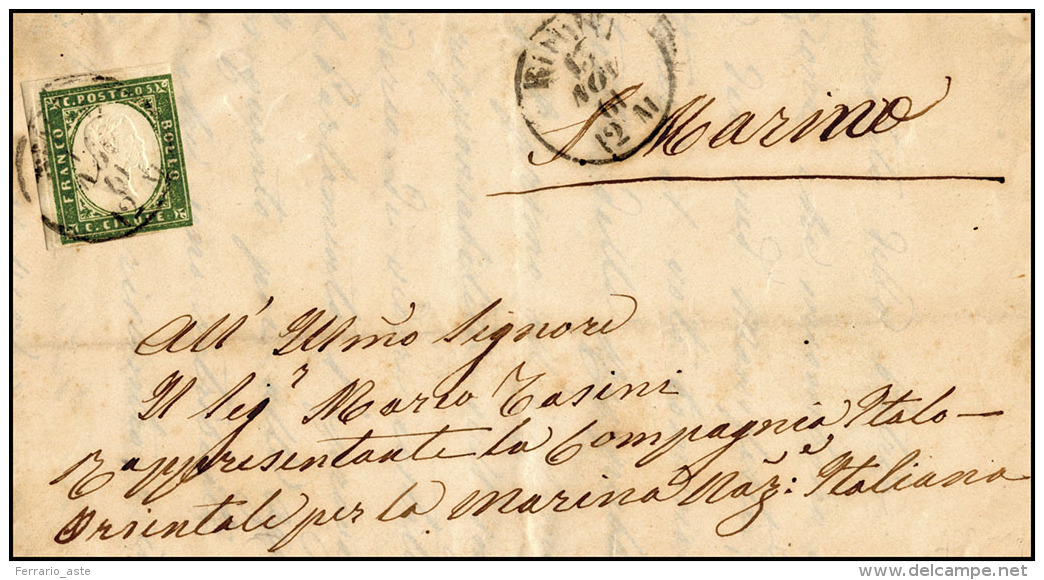 C. POSTE. OS.
FRANCO
BOLLO
C. CINQUE
RIMINI
NOV
61
12 M
S. Marino
All' Illmo Signore
Il Sigr Marco Tasini
Rappresentante la Compagnia Italo-
Orientale per la Marina Naze: Italiana
Ferrario_aste
www.delcampe.net